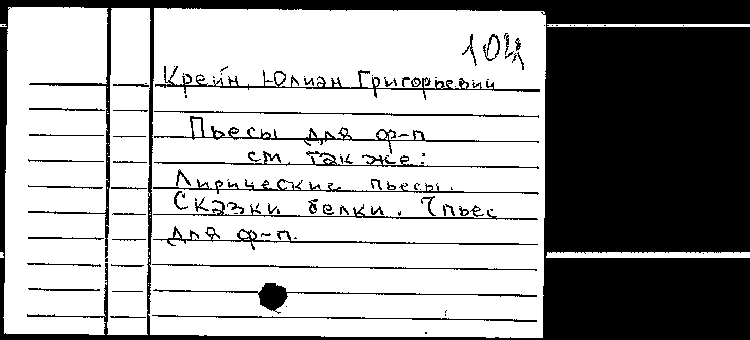 104
Крейн, Юлиан Григорьевич
Пьесы для ф-п
см. также:
Лирические пьесы.
Сказки белки. 7 пьес
для ф-п.